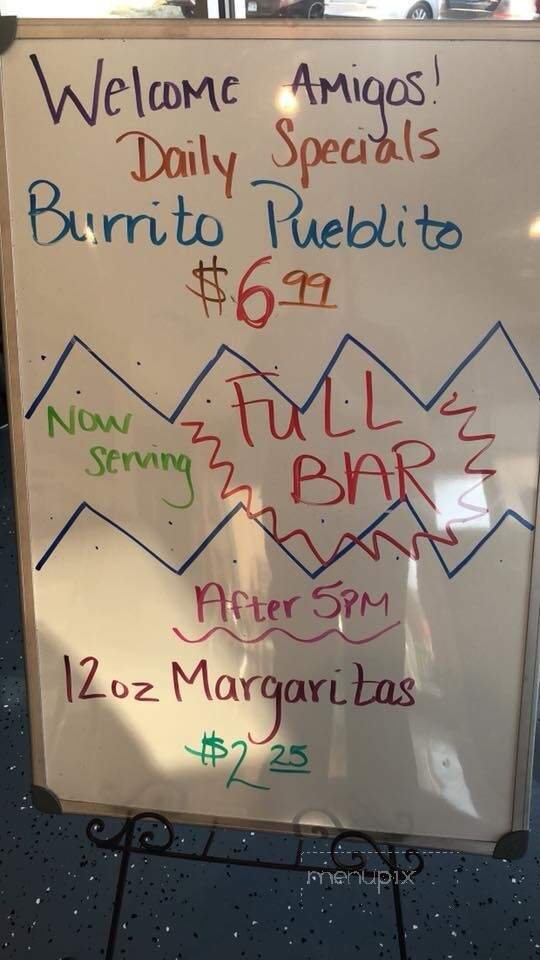 Welcome Amigos!
Daily Specials
Burrito Pueblito
$6.99
Now Serving
FULL BAR
After 5PM
12oz Margaritas
$2 25
menupix